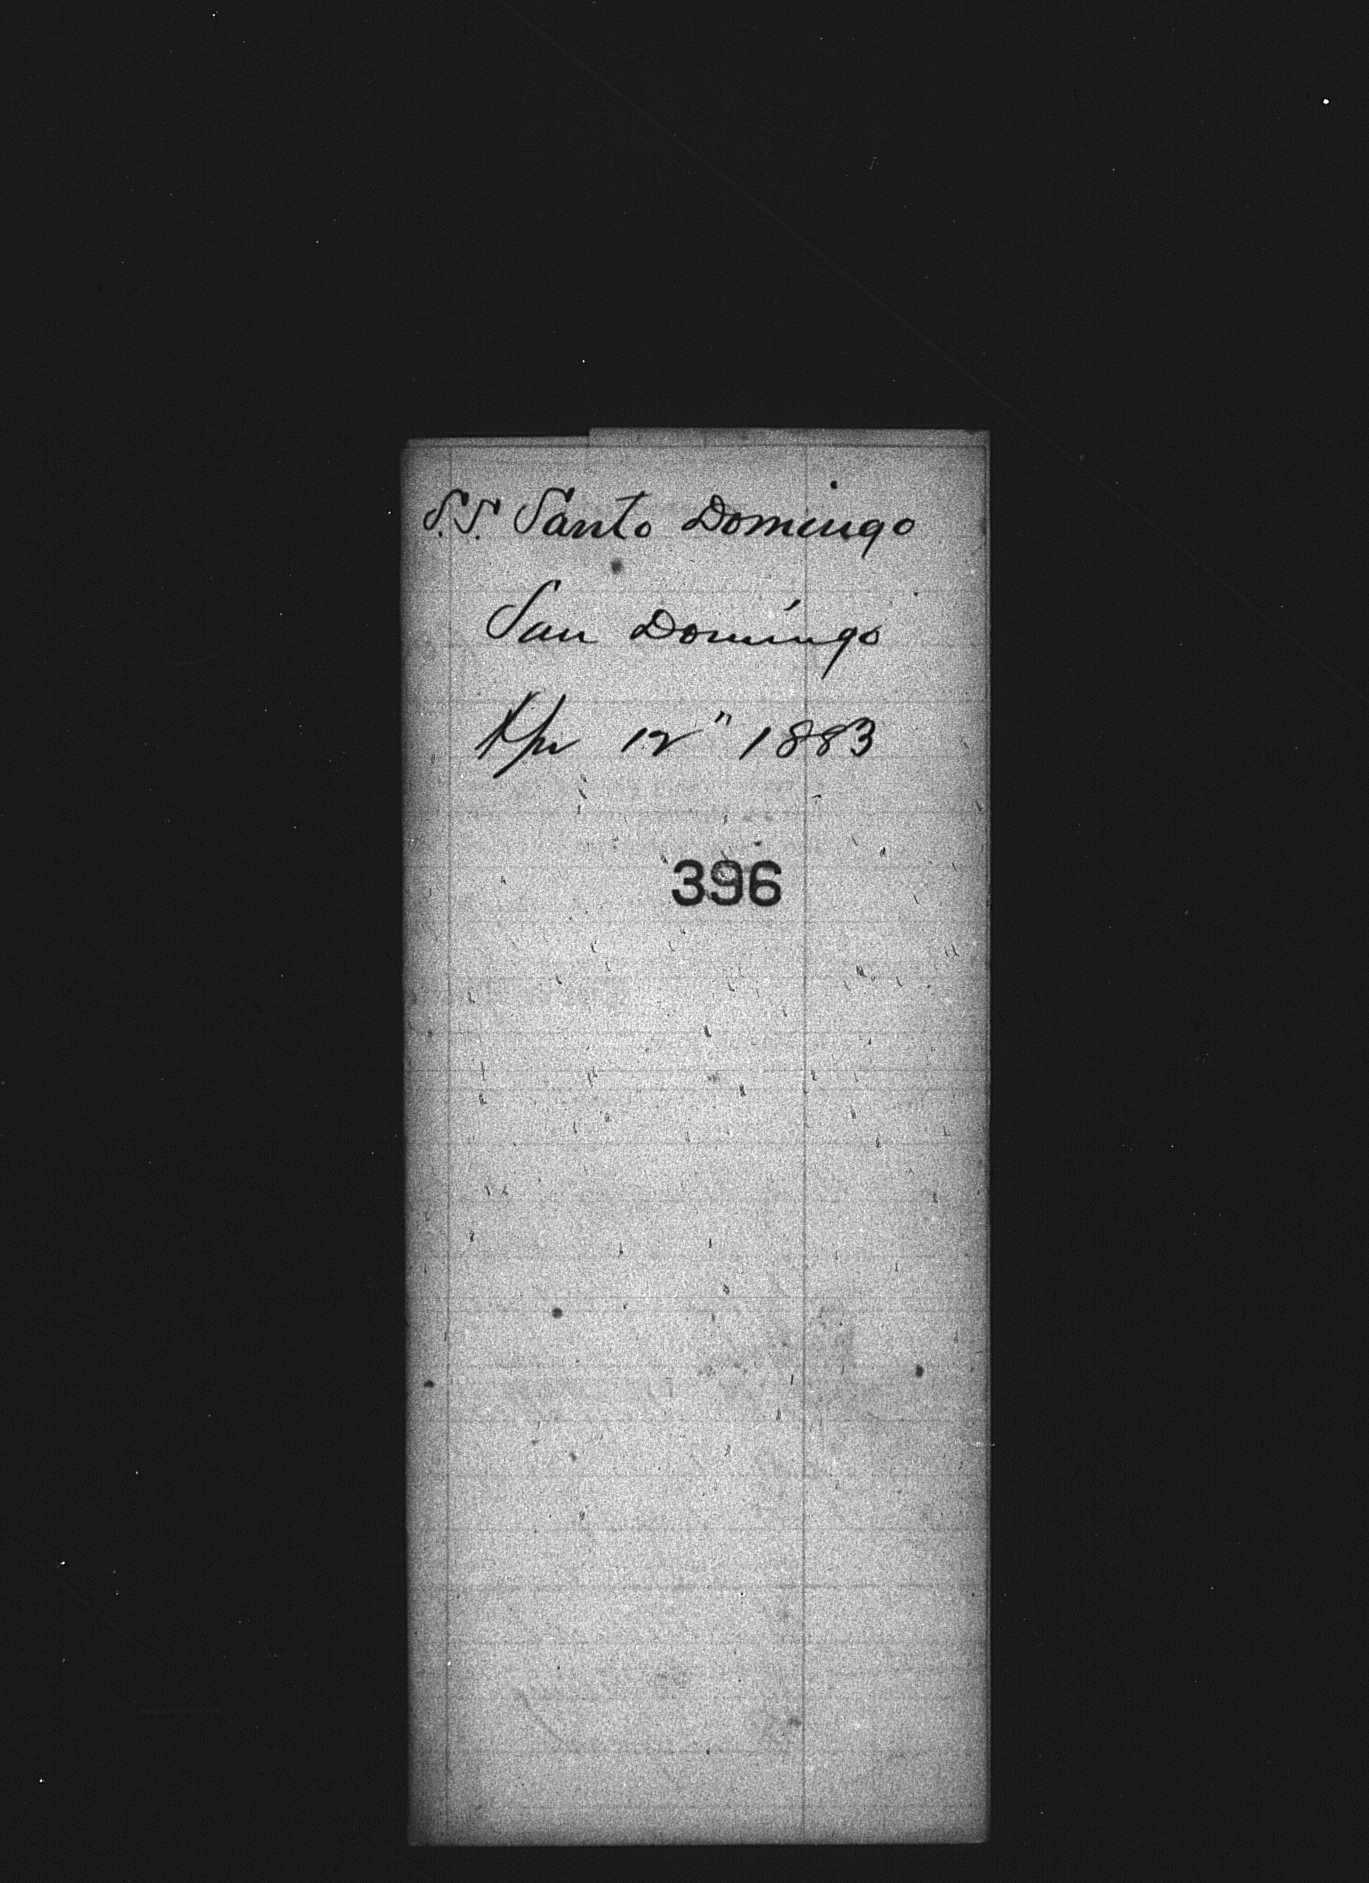 S.S. Santo Domingo
San Domingo
Apr 12" 1883
396